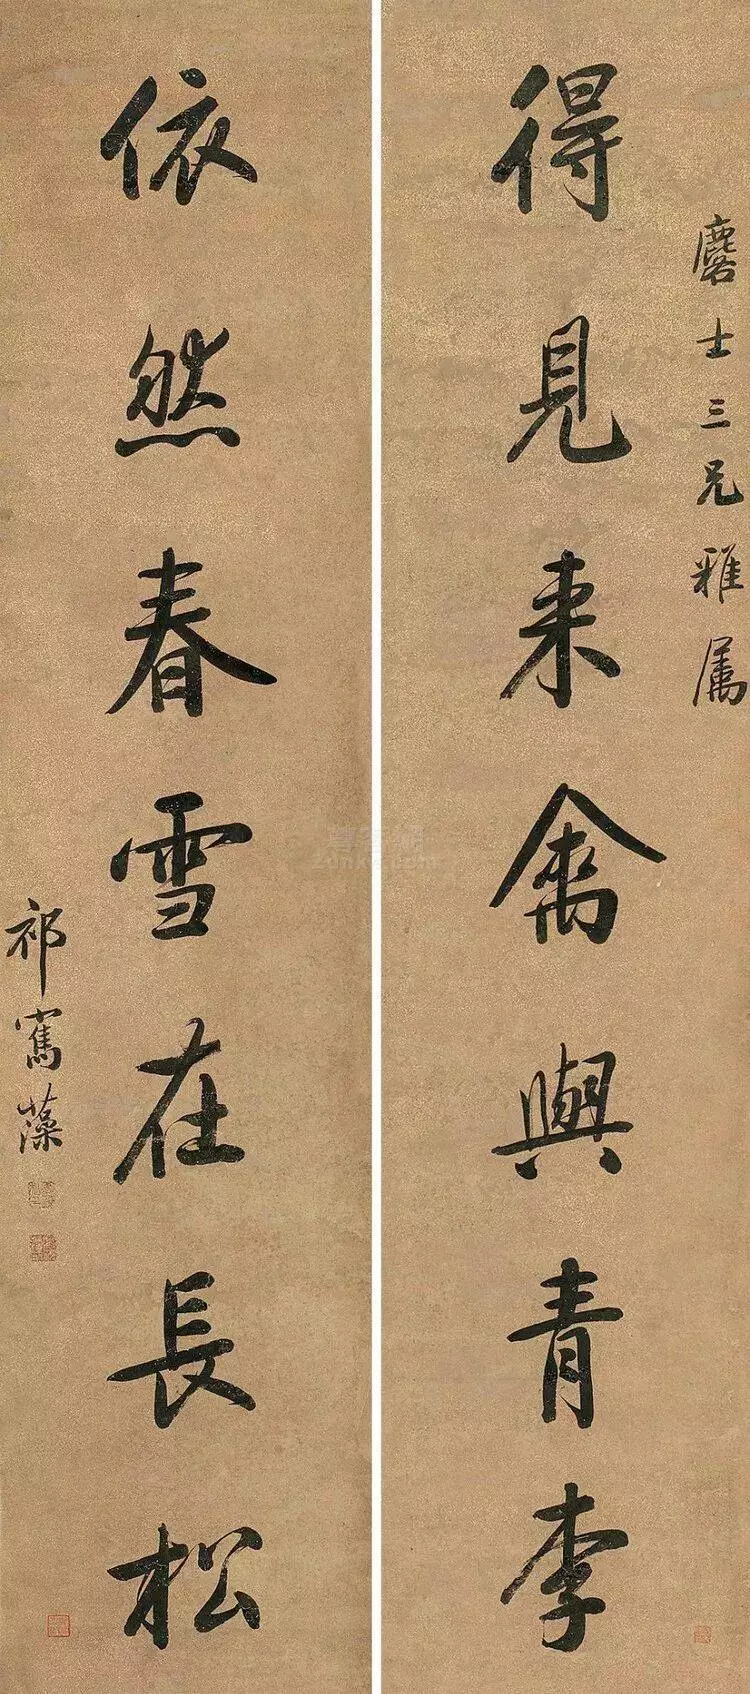 麐士三兄雅屬
得見來禽與青李
依然春雪在長松
祁寯藻